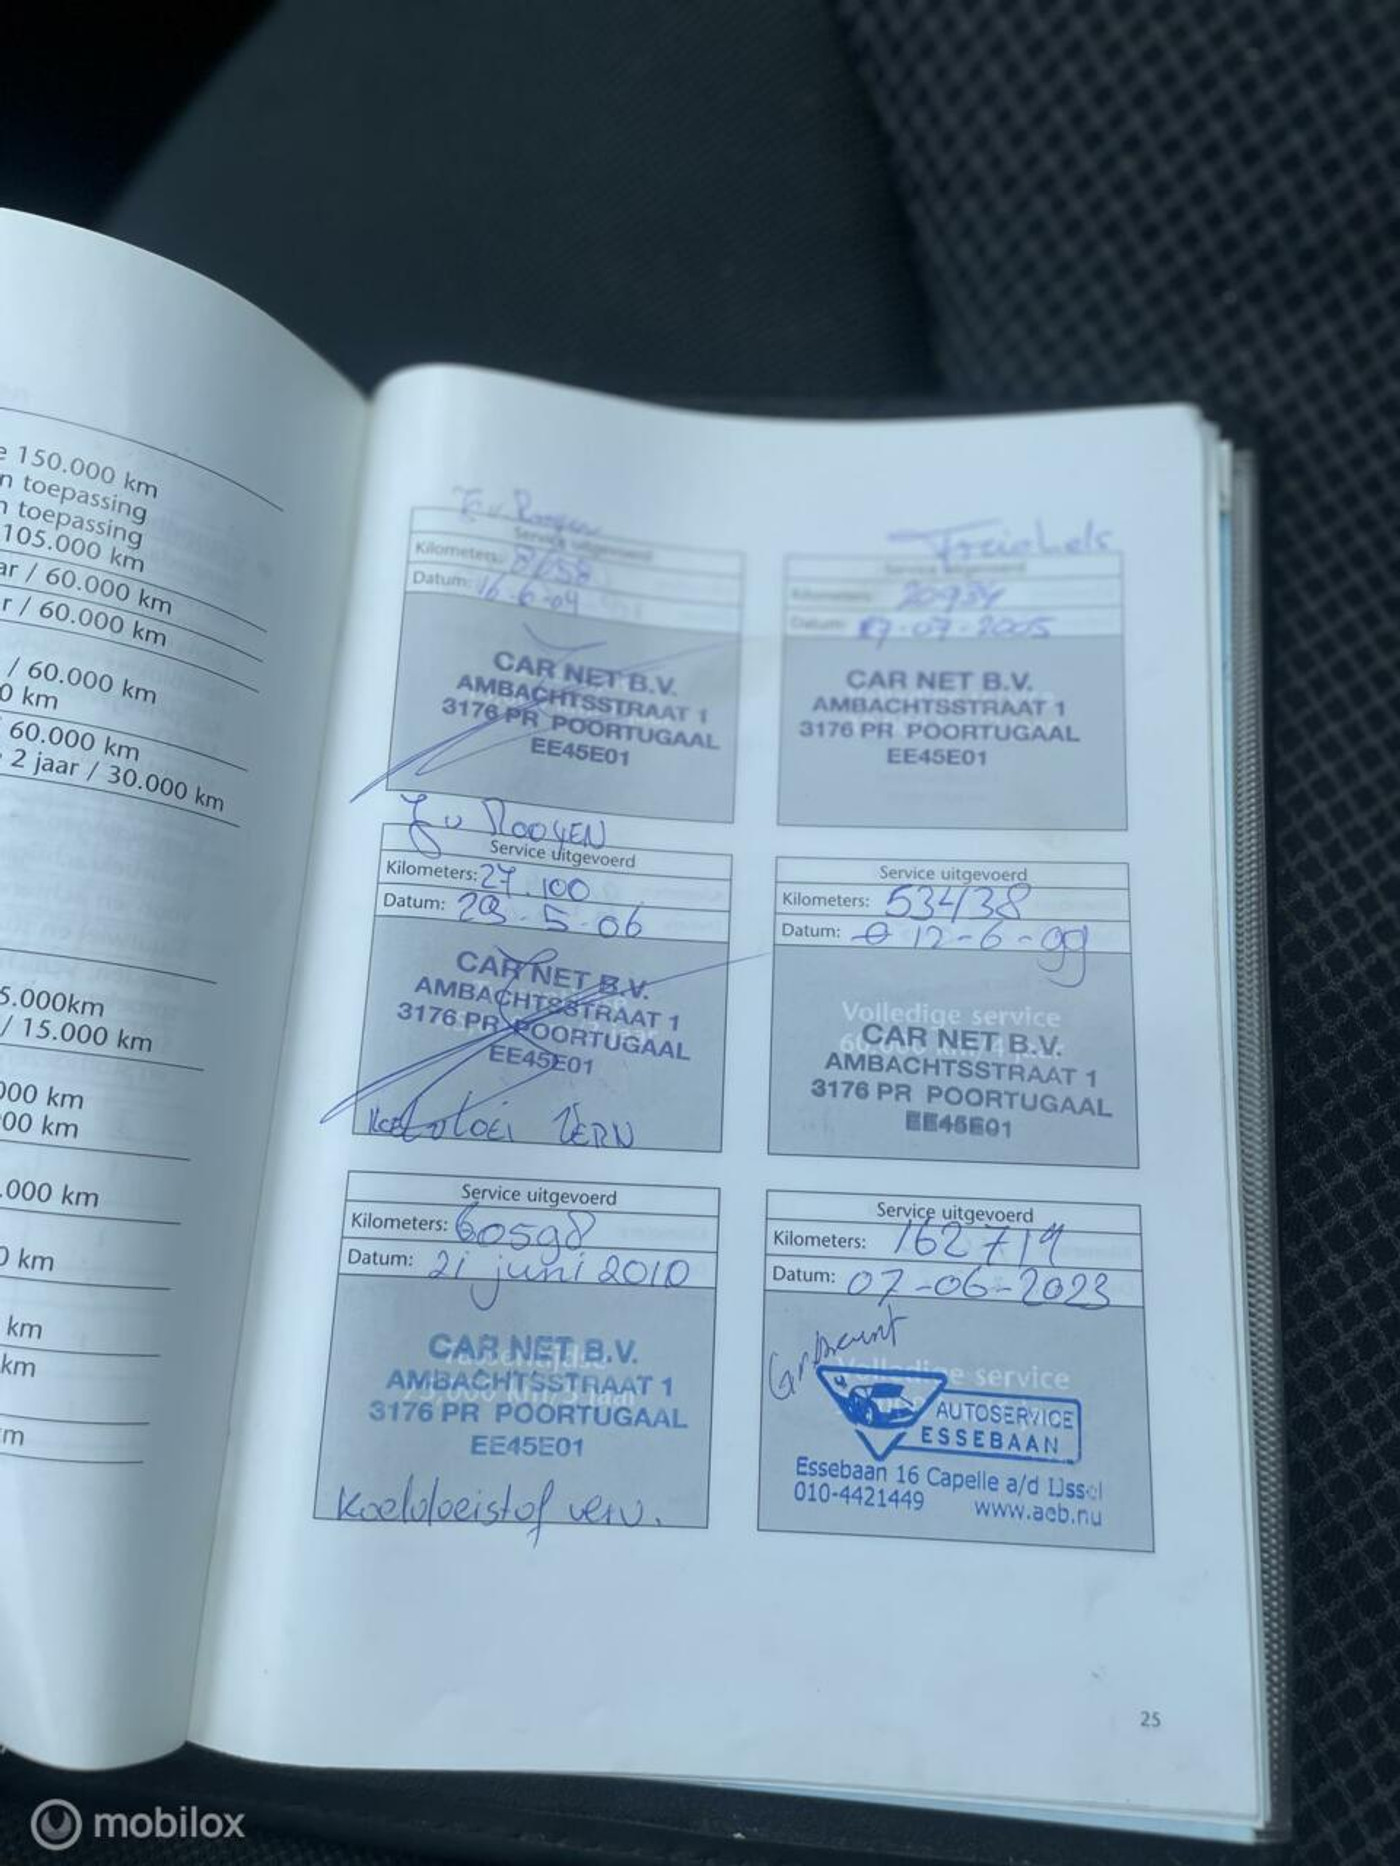 e 150.000 km
n toepassing
n toepassing
105.000 km
ar / 60.000 km
r / 60.000 km
/ 60.000 km
0 km
60.000 km
2 jaar / 30.000 km
5.000km
/ 15.000 km
000 km
00 km
.000 km
0 km
km
km
m
Service uitgevoerd
Kilometers:
Datum: 16-6-04
CAR NET B.V.
AMBACHTSSTRAAT 1
3176 PR POORTUGAAL
EE45E01
Service uitgevoerd
Kilometers: 20984
Datum: 07-07-2005
CAR NET B.V.
AMBACHTSSTRAAT 1
3176 PR POORTUGAAL
EE45E01
J v ROOYEN
Service uitgevoerd
Kilometers: 27.100
Datum: 29-5-06
CAR NET B.V.
AMBACHTSSTRAAT 1
3176 PR POORTUGAAL
EE45E01
Service uitgevoerd
Kilometers: 53438
Datum: 12-6-09
Volledige service
CAR NET B.V.
AMBACHTSSTRAAT 1
3176 PR POORTUGAAL
EE45E01
Service uitgevoerd
Kilometers: 60598
Datum: 21 juni 2010
CAR NET B.V.
AMBACHTSSTRAAT 1
3176 PR POORTUGAAL
EE45E01
Koelvloeistof verv.
Service uitgevoerd
Kilometers: 162719
Datum: 07-06-2023
Volledige service
AUTOSERVICE
ESSEBAAN
Essebaan 16 Capelle a/d IJssel
010-4421449 www.aeb.nu
25
mobilox